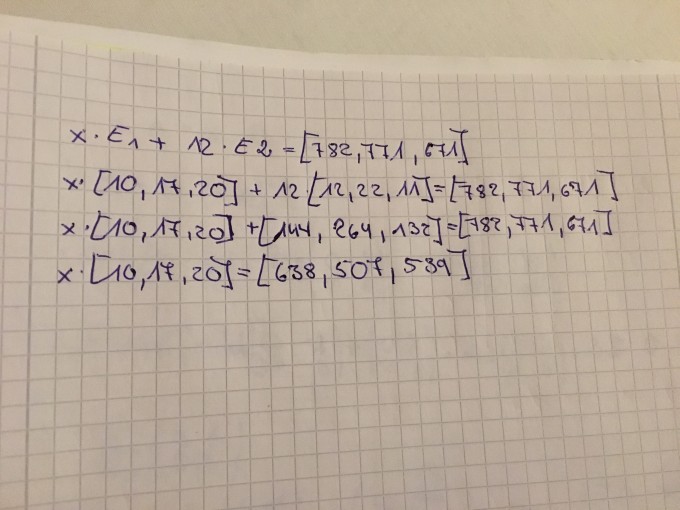 x · E1 + 12 · E2 = [782, 771, 671]
x · [10, 17, 20] + 12 · [12, 22, 11] = [782, 771, 671]
x · [10, 17, 20] + [144, 264, 132] = [782, 771, 671]
x · [10, 17, 20] = [638, 507, 539]